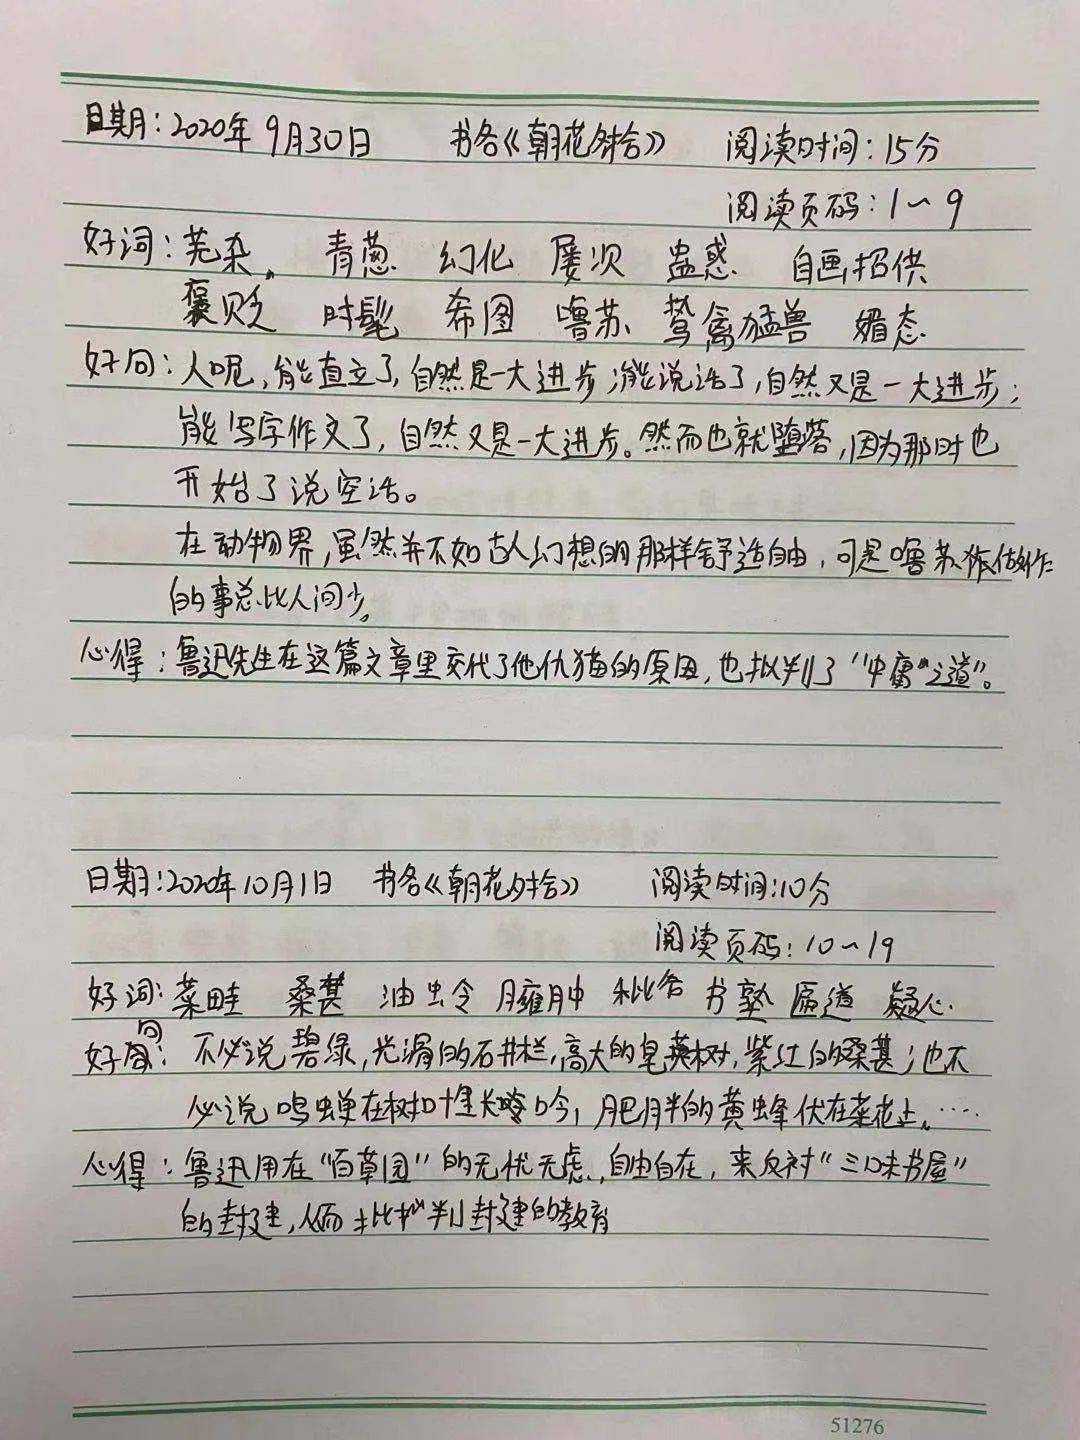 日期：2020年9月30日 书名《朝花夕拾》 阅读时间：15分
阅读页码：1～9
好词：芜杂 青葱 幻化 屡次 蛊惑 自画招供
褒贬 时髦 希图 噜苏 鸷禽猛兽 媚态
好句：人呢，能直立了，自然是一大进步；能说话了，自然又是一大进步；
能写字作文了，自然又是一大进步。然而也就堕落，因为那时也
开始了说空话。
在动物界，虽然并不如古人幻想的那样舒适自由，可是噜苏做作
的事总比人间少。
心得：鲁迅先生在这篇文章里交代了他仇猫的原因，也批判了“中庸”之道”。
日期：2020年10月1日 书名《朝花夕拾》 阅读时间：10分
阅读页码：10～19
好词：菜畦 桑葚 油蛉 臃肿 秕谷 书塾 匾道 疑心
好句：不必说碧绿，光滑的石井栏，高大的皂荚树，紫红的桑葚；也不
必说鸣蝉在树叶里长吟，肥胖的黄蜂伏在菜花上。……
心得：鲁迅用在“百草园”的无忧无虑，自由自在，来反衬“三味书屋”
的封建，从而批判封建的教育
51276